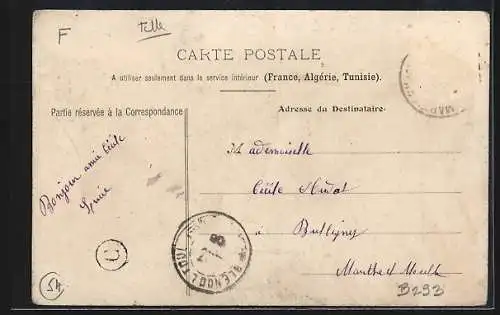 F
CARTE POSTALE
A utiliser seulement dans le service intérieur (France, Algérie, Tunisie).
Partie réservée à la Correspondance
Adresse du Destinataire
Bonjour amie Cécile
Mademoiselle
Cécile
à Bulligny
Meurthe et Moselle
C
54
B293